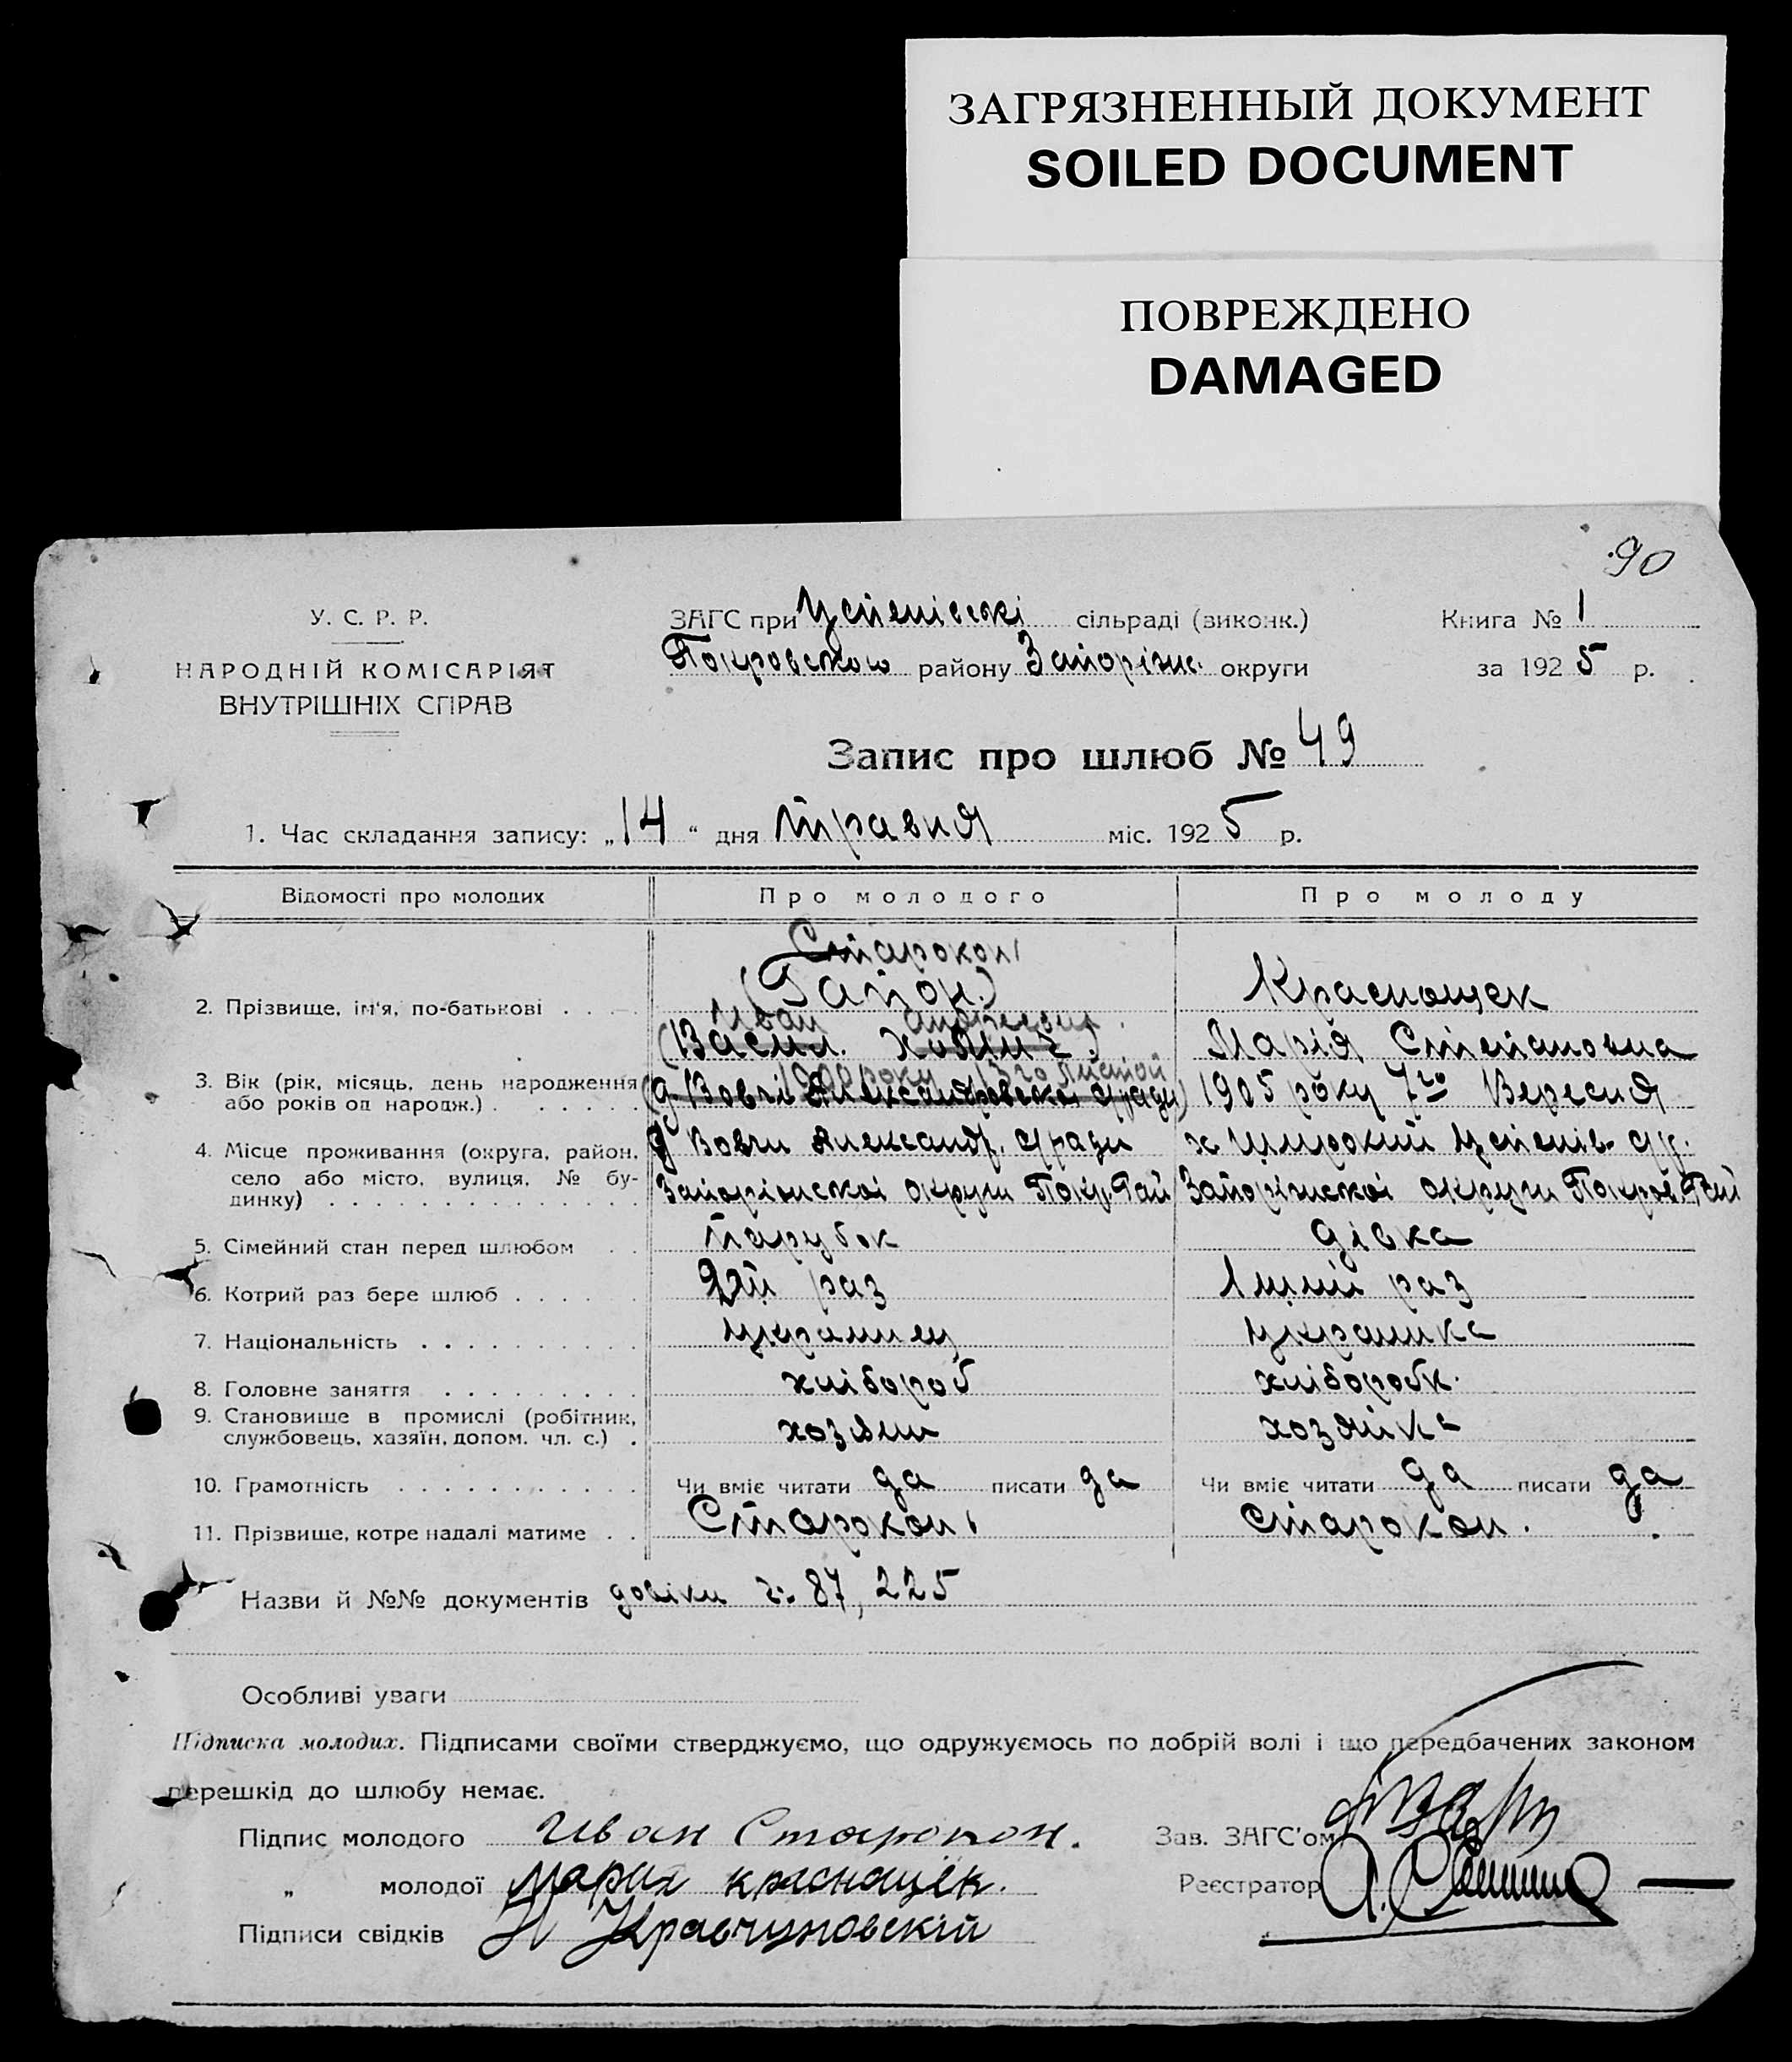 ЗАГРЯЗНЕННЫЙ ДОКУМЕНТ
SOILED DOCUMENT
ПОВРЕЖДЕНО
DAMAGED
90
У. С. Р. Р.
НАРОДНІЙ КОМІСАРІЯТ
ВНУТРІШНІХ СПРАВ
ЗАГС при Успенівскі сільраді (виконк.)
Покровського району Запоріжс. округи
Книга № 1
за 1925 р.
Запис про шлюб № 49
1. Час складання запису: „14“ дня травня міс. 1925 р.
Відомості про молодих Про молодого Про молоду
2. Прізвище, ім'я, по-батькові . . . .
Старокон
(Гапон.)
Иван Андреевич.
(Васил.
Краснощек
Марія Степановна
3. Вік (рік, місяць, день народження або років од народж.) . . . . . .
1900 року 13го
(д. Вовчі Александровскої с/ради)
1905 року 7го Вересня
4. Місце проживання (округа, район, село або місто, вулиця, № будинку) . . . . . . . . . . . . . .
д Вовчи Александр. с/ради
Запоріжскої округи Покр. Рай
х Широкий Успенів- с/р.
Запоріжскої округи Покров. Рай
5. Сімейний стан перед шлюбом . . парубок дівка
6. Котрий раз бере шлюб . . . . . 2й раз 1ший раз
7. Національність . . . . . . . . . . украинец украинка
8. Головне заняття . . . . . . . . . хлібороб хліборобк.
9. Становище в промислі (робітник, службовець, хазяїн, допом. чл. с.) . хозяин хозяйка
10. Грамотність . . . . . . . . . . . Чи вміє читати да писати да Чи вміє читати да писати да
11. Прізвище, котре надалі матиме . . Старокон, Старокон.
Назви й №№ документів довіки ч: 87, 225
Особливі уваги
Підписка молодих. Підписами своїми стверджуємо, що одружуємось по добрій волі і що передбачених законом
перешкід до шлюбу немає.
Підпис молодого Иван Старокон.
„ молодої Мария краснащек.
Підписи свідків Н Кравчуновскій
Зав. ЗАГС'ом
Реєстратор